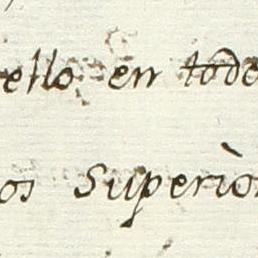 ello en tode
os Superiòr